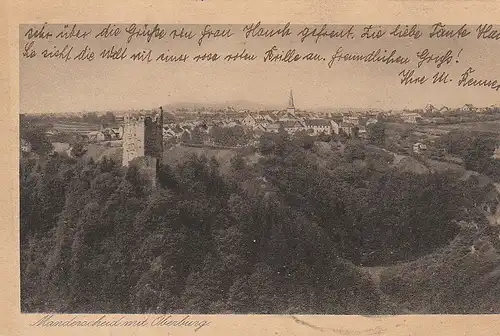 sehr über die Grüße von Frau Hauck gefreut. Die liebe Tante Ha
Se sieht die Welt mit einer rosa roten Brille an. freundlichen Gruß!
Ihre M. Renner
Manderscheid mit Oberburg